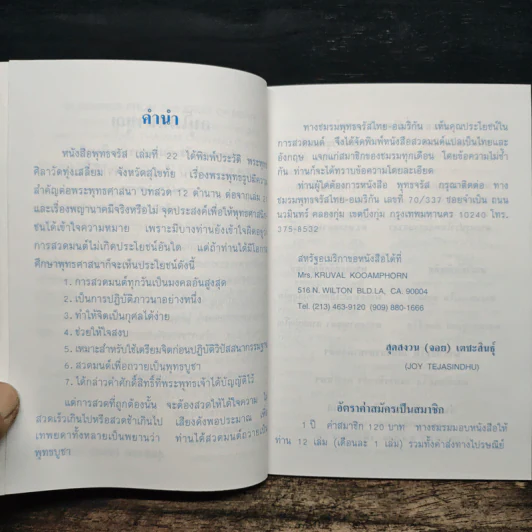 คำนำ
หนังสือพุทธจรัส เล่มที่ 22 ได้พิมพ์ประวัติ พระพุทธ
ศิลาวัดทุ่งเสลี่ยม จังหวัดสุโขทัย เรื่องพระพุทธรูปมีความ
สำคัญต่อพระพุทธศาสนา บทสวด 12 ตำนาน ต่อจากเล่ม
และเรื่องพญานาคมีจริงหรือไม่ จุดประสงค์เพื่อให้พุทธศาสนิก
ชนได้เข้าใจความหมาย เพราะมีบางท่านยังเข้าใจผิดอยู่ว่า
การสวดมนต์ไม่เกิดประโยชน์อันใด แต่ถ้าท่านได้มีโอกาส
ศึกษาพุทธศาสนาก็จะเห็นประโยชน์ดังนี้
1. การสวดมนต์ทุกวันเป็นมงคลอันสูงสุด
2. เป็นการปฏิบัติภาวนาอย่างหนึ่ง
3. ทำให้จิตเป็นกุศลได้ง่าย
4. ช่วยให้ใจสงบ
5. เหมาะสำหรับใช้เตรียมจิตก่อนปฏิบัติวิปัสสนากรรมฐาน
6. สวดมนต์เพื่อถวายเป็นพุทธบูชา
7. ได้กล่าวคำศักดิ์สิทธิ์ที่พระพุทธเจ้าได้บัญญัติไว้
แต่การสวดที่ถูกต้องนั้น จะต้องสวดให้ได้ใจความ
สวดเร็วเกินไปหรือสวดช้าเกินไป เสียงดังพอประมาณ เพื่อ
เทพยดาทั้งหลายเป็นพยานว่า ท่านได้สวดมนต์ถวายเป็น
พุทธบูชา
ทางชมรมพุทธจรัสไทย-อเมริกัน เห็นคุณประโยชน์ใน
การสวดมนต์ จึงได้จัดพิมพ์หนังสือสวดมนต์แปลเป็นไทยและ
อังกฤษ แจกแก่สมาชิกของชมรมทุกเดือน โดยข้อความไม่ซ้ำ
กัน ท่านก็จะได้ทราบข้อความโดยละเอียด
ท่านผู้ใดต้องการหนังสือ พุทธจรัส กรุณาติดต่อ ทาง
ชมรมพุทธจรัสไทย-อเมริกัน เลขที่ 70/337 ซอยจำเป็น ถนน
นวมินทร์ คลองกุ่ม เขตบึงกุ่ม กรุงเทพมหานคร 10240 โทร.
375-8532
สหรัฐอเมริกาขอหนังสือได้ที่
Mrs. KRUVAL KOOAMPHORN
516 N. WILTON BLD.LA, CA. 90004
Tel. (213) 463-9120 (909) 880-1666
สุดสงวน (จอย) เตชะสินธุ์
(JOY TEJASINDHU)
อัตราค่าสมัครเป็นสมาชิก
1 ปี ค่าสมาชิก 120 บาท ทางชมรมมอบหนังสือให้
ท่าน 12 เล่ม (เดือนละ 1 เล่ม) รวมทั้งค่าส่งทางไปรษณีย์